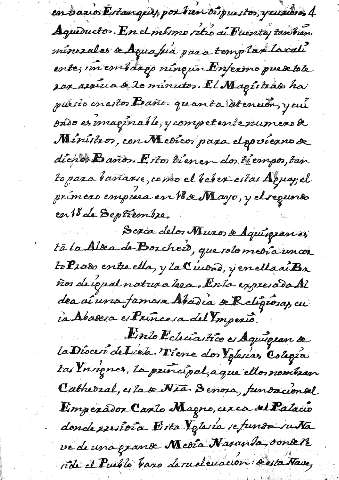 en varios Estanques, por bien dispuestos, y curiosos 4
Aqueductos. En el mismo sitio ai Fuentes tambien
minerales de Agua fria para templar la cali
ente; sin embargo ningun Enfermo puede tole
rar arriva de 20 minutos. El Magistrado ha
puesto en estos Baños quanta atencion, y cui
dado es imaginable, y competente numero de
Ministros, con Medicos para el govierno de
dichos Baños. Estos tienen dos tiempos, tan
to para bañarse, como el beber estas Aguas; el
primero empieza en 18 de Mayo, y el segundo
en 18 de Septiembre.
Serca de los Muros de Aquisgran es
tà la Aldea de Borcheid, que solo media un cor
to Prado entre ella, y la Ciudad, y en ella ai Ba
ños de igual naturaleza. En la expresada Al
dea ai una famosa Abadia de Religiosas, cu
ia Abadesa es Princesa del Ymperio.
En lo Eclesiastico es Aquisgran de
la Diocesi de Lieja. Tiene dos Yglesias Colegia
tas Ynsignes, la principal, a que ellos nombran
Cathedral, es la de Nra. Señora, fundacion del
Emperador Carlo Magno, cerca del Palacio
donde presidia. Esta Yglesia se funda su Na
ve de una grande Media Naranja, donde re
side el Pueblo baxo de su elevacion: de esta Nave,